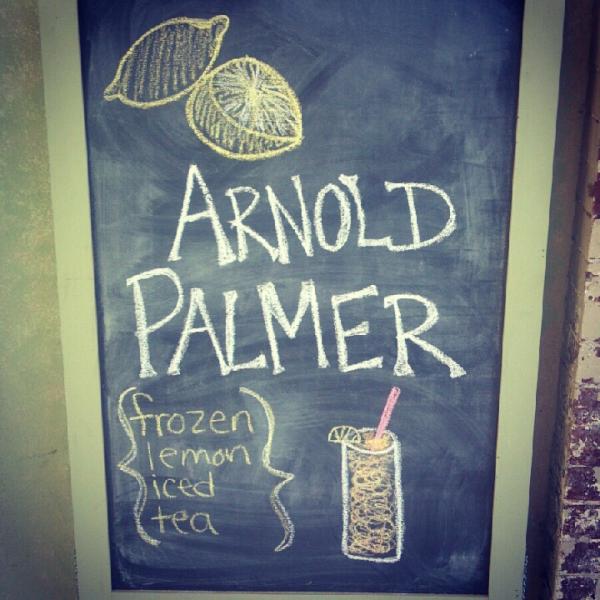 ARNOLD
PALMER
{frozen
lemon
iced
tea}